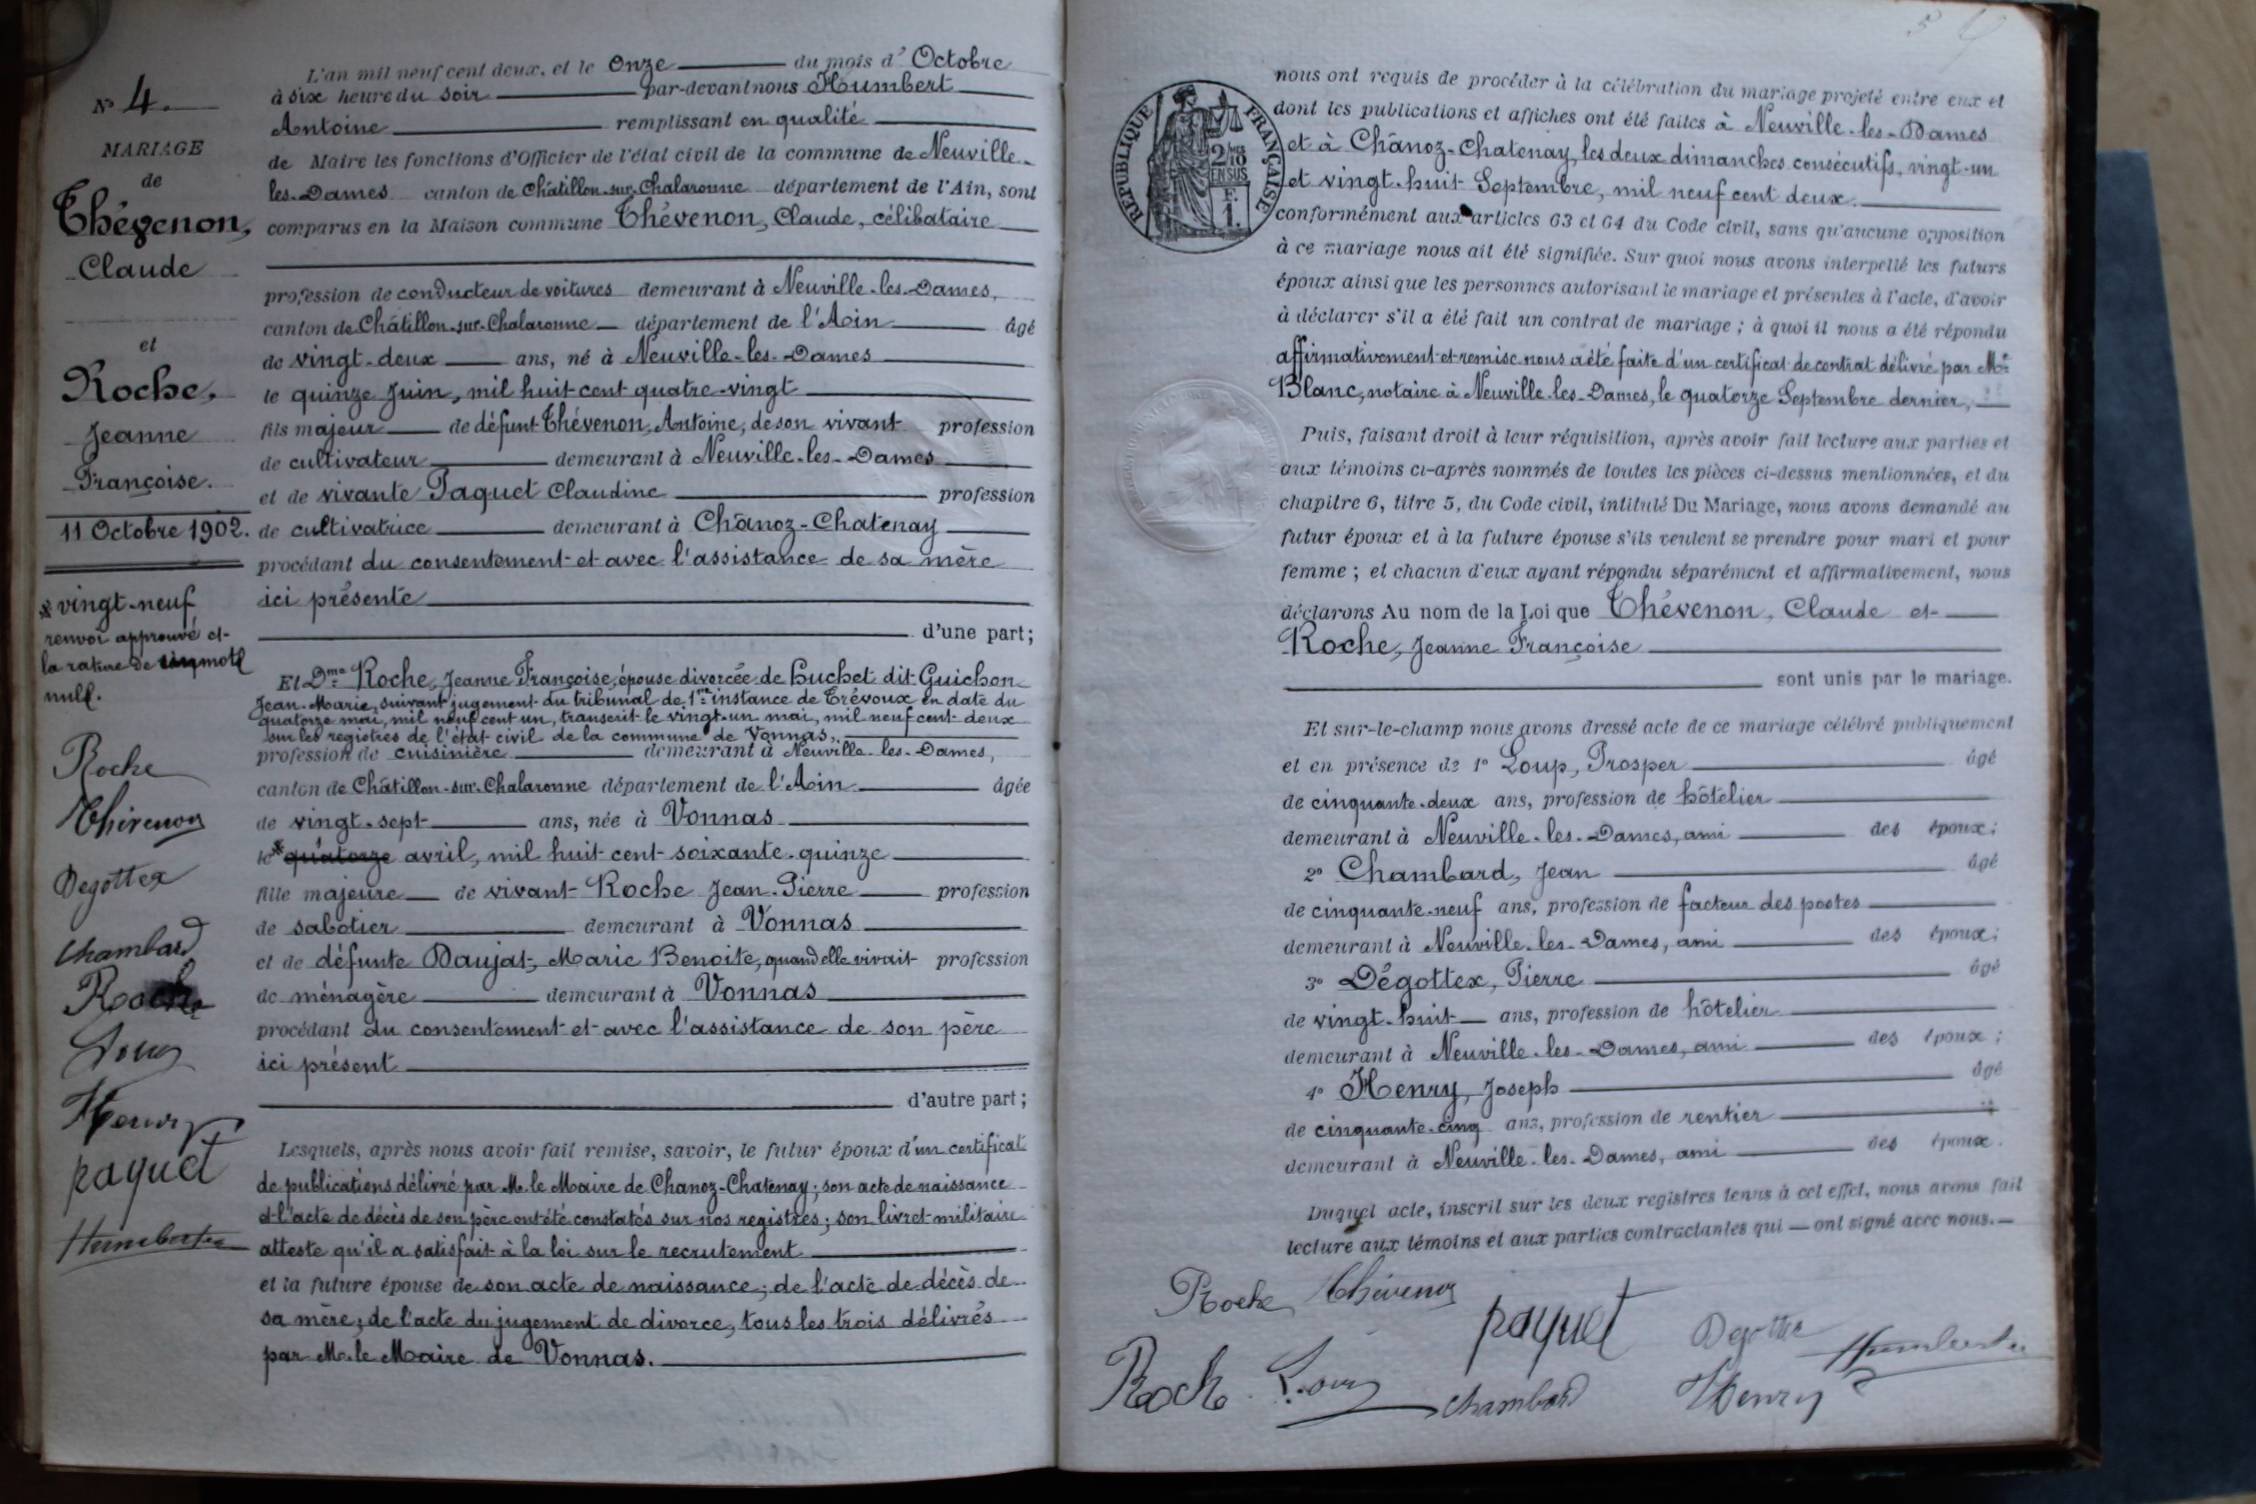 N° 4.
MARIAGE
de
Thévenon,
Claude
et
Roche,
Jeanne
Françoise.
11 Octobre 1902.
vingt-neuf
renvoi approuvé et
la rature de mot
null.
Roche
Thévenon
Degottex
Chambard
Roche
Loup
Henry
paquet
Humbert
L'an mil neuf cent deux, et le Onze du mois d' Octobre
à six heure du soir par-devant nous Humbert
Antoine remplissant en qualité
de Maire les fonctions d'Officier de l'état civil de la commune de Neuville-
les-Dames canton de Châtillon-sur-Chalaronne département de l'Ain, sont
comparus en la Maison commune Thévenon, Claude, célibataire
profession de conducteur de voitures demeurant à Neuville-les-Dames,
canton de Châtillon-sur-Chalaronne département de l'Ain âgé
de vingt-deux ans, né à Neuville-les-Dames
le quinze Juin, mil huit cent quatre-vingt
fils majeur de défunt Thévenon, Antoine, de son vivant profession
de cultivateur demeurant à Neuville-les-Dames
et de vivante Paquet Claudine profession
de cultivatrice demeurant à Chânoz-Chatenay
procédant du consentement et avec l'assistance de sa mère
ici présente
d'une part;
Et Dme Roche, Jeanne Françoise, épouse divorcée de Buchet dit Guichon
Jean-Marie, suivant jugement du tribunal de 1re instance de Trévoux en date du
quatorze mai, mil neuf cent un, transcrit le vingt-un mai, mil neuf cent deux
sur les registres de l'état civil de la commune de Vonnas,
profession de cuisinière demeurant à Neuville-les-Dames,
canton de Châtillon-sur-Chalaronne département de l'Ain âgée
de vingt-sept ans, née à Vonnas
le quatorze avril, mil huit cent soixante-quinze
fille majeure de vivant Roche Jean-Pierre profession
de sabotier demeurant à Vonnas
et de défunte Daujat, Marie Benoite, quand elle vivait profession
de ménagère demeurant à Vonnas
procédant du consentement et avec l'assistance de son père
ici présent
d'autre part;
Lesquels, après nous avoir fait remise, savoir, le futur époux d'un certificat
de publications délivré par M. le Maire de Chanoz-Chatenay; son acte de naissance
et l'acte de décès de son père ont été constatés sur nos registres; son livret militaire
atteste qu'il a satisfait à la loi sur le recrutement
et la future épouse de son acte de naissance; de l'acte de décès de
sa mère; de l'acte du jugement de divorce, tous les trois délivrés
par M. le Maire de Vonnas.
RÉPUBLIQUE FRANÇAISE
2/10 EN SUS
F. 1.
nous ont requis de procéder à la célébration du mariage projeté entre eux et
dont les publications et affiches ont été faites à Neuville-les-Dames
et à Chânoz-Chatenay, les deux dimanches consécutifs, vingt-un
et vingt-huit Septembre, mil neuf cent deux.
conformément aux articles 63 et 64 du Code civil, sans qu'aucune opposition
à ce mariage nous ait été signifiée. Sur quoi nous avons interpellé les futurs
époux ainsi que les personnes autorisant le mariage et présentes à l'acte, d'avoir
à déclarer s'il a été fait un contrat de mariage; à quoi il nous a été répondu
affirmativement et remise nous a été faite d'un certificat de contrat délivré par Me
Blanc, notaire à Neuville-les-Dames, le quatorze Septembre dernier,
Puis, faisant droit à leur réquisition, après avoir fait lecture aux parties et
aux témoins ci-après nommés de toutes les pièces ci-dessus mentionnées, et du
chapitre 6, titre 5, du Code civil, intitulé Du Mariage, nous avons demandé au
futur époux et à la future épouse s'ils veulent se prendre pour mari et pour
femme; et chacun d'eux ayant répondu séparément et affirmativement, nous
déclarons Au nom de la Loi que Thévenon, Claude et
Roche, Jeanne Françoise
sont unis par le mariage.
Et sur-le-champ nous avons dressé acte de ce mariage célébré publiquement
et en présence de 1° Loup, Prosper âgé
de cinquante-deux ans, profession de hôtelier
demeurant à Neuville-les-Dames, ami des époux;
2° Chambard, Jean âgé
de cinquante-neuf ans, profession de facteur des postes
demeurant à Neuville-les-Dames, ami des époux;
3° Dégottex, Pierre âgé
de vingt-huit ans, profession de hôtelier
demeurant à Neuville-les-Dames, ami des époux;
4° Henry, Joseph âgé
de cinquante-cinq ans, profession de rentier
demeurant à Neuville-les-Dames, ami des époux.
Duquel acte, inscrit sur les deux registres tenus à cet effet, nous avons fait
lecture aux témoins et aux parties contractantes qui ont signé avec nous.
Roche Thévenon paquet Degottex Humbert
Roche Loup Chambard Henry